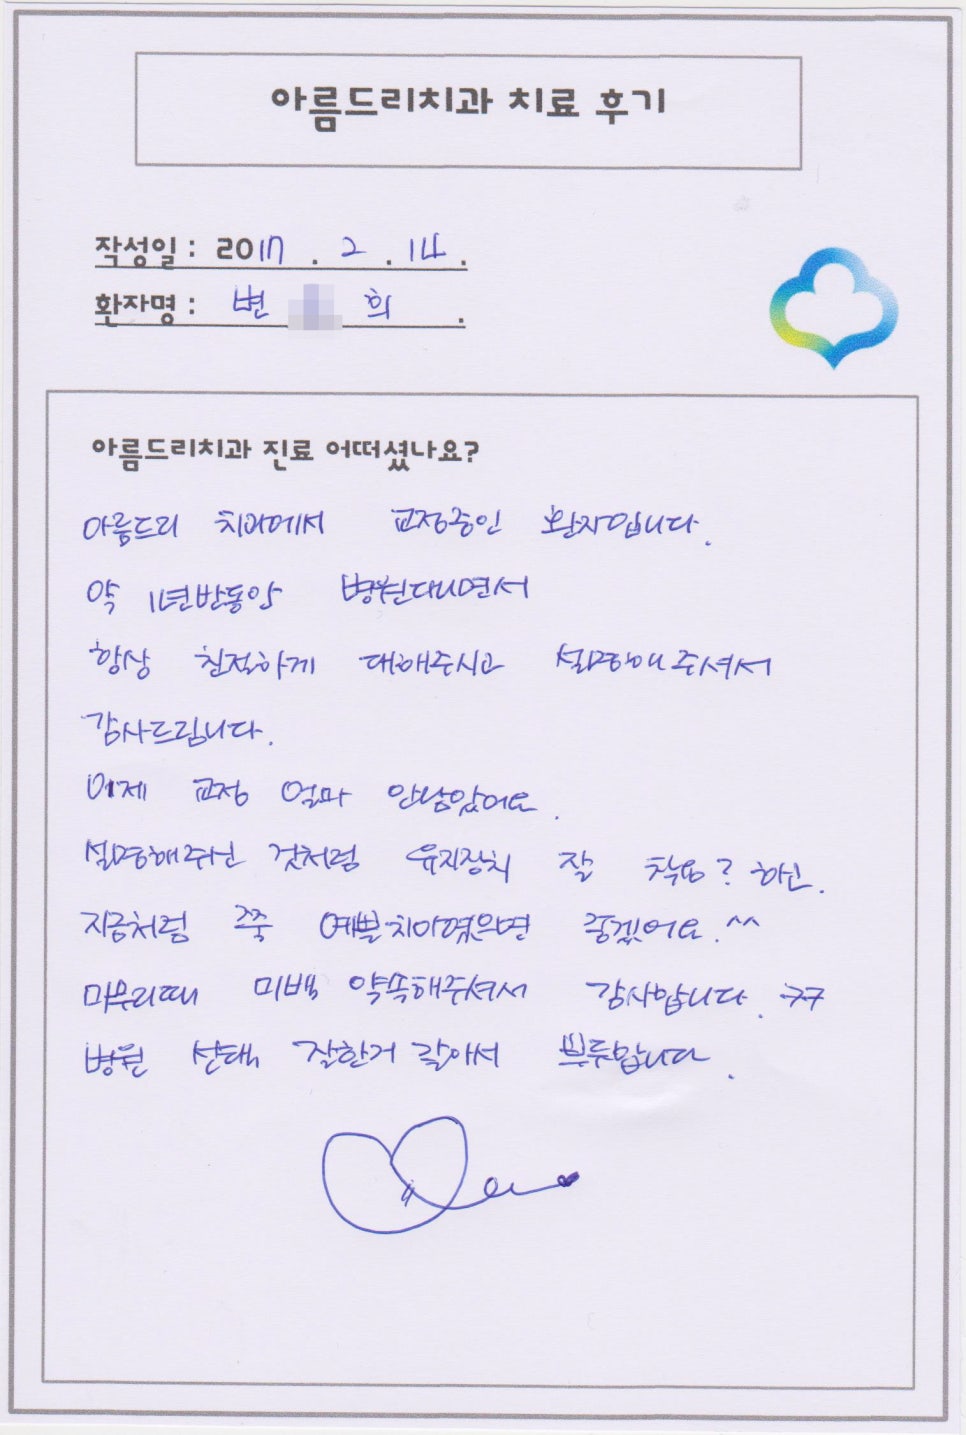 아름드리치과 치료 후기
작성일 : 2017 . 2 . 14 .
환자명 : 변 희 .
아름드리치과 진료 어떠셨나요?
아름드리 치과에서 교정중인 환자입니다.
약 1년반동안 병원다니면서
항상 친절하게 대해주시고 설명해주셔서
감사드립니다.
이제 교정 얼마 안남았어요.
설명해주신 것처럼 유지장치 잘 착용? 하고.
지금처럼 쭉 예쁜치아였으면 좋겠어요.^^
마무리때 미백 약속해주셔서 감사합니다. ㅋㅋ
병원 선택 잘한거 같아서 뿌듯합니다.